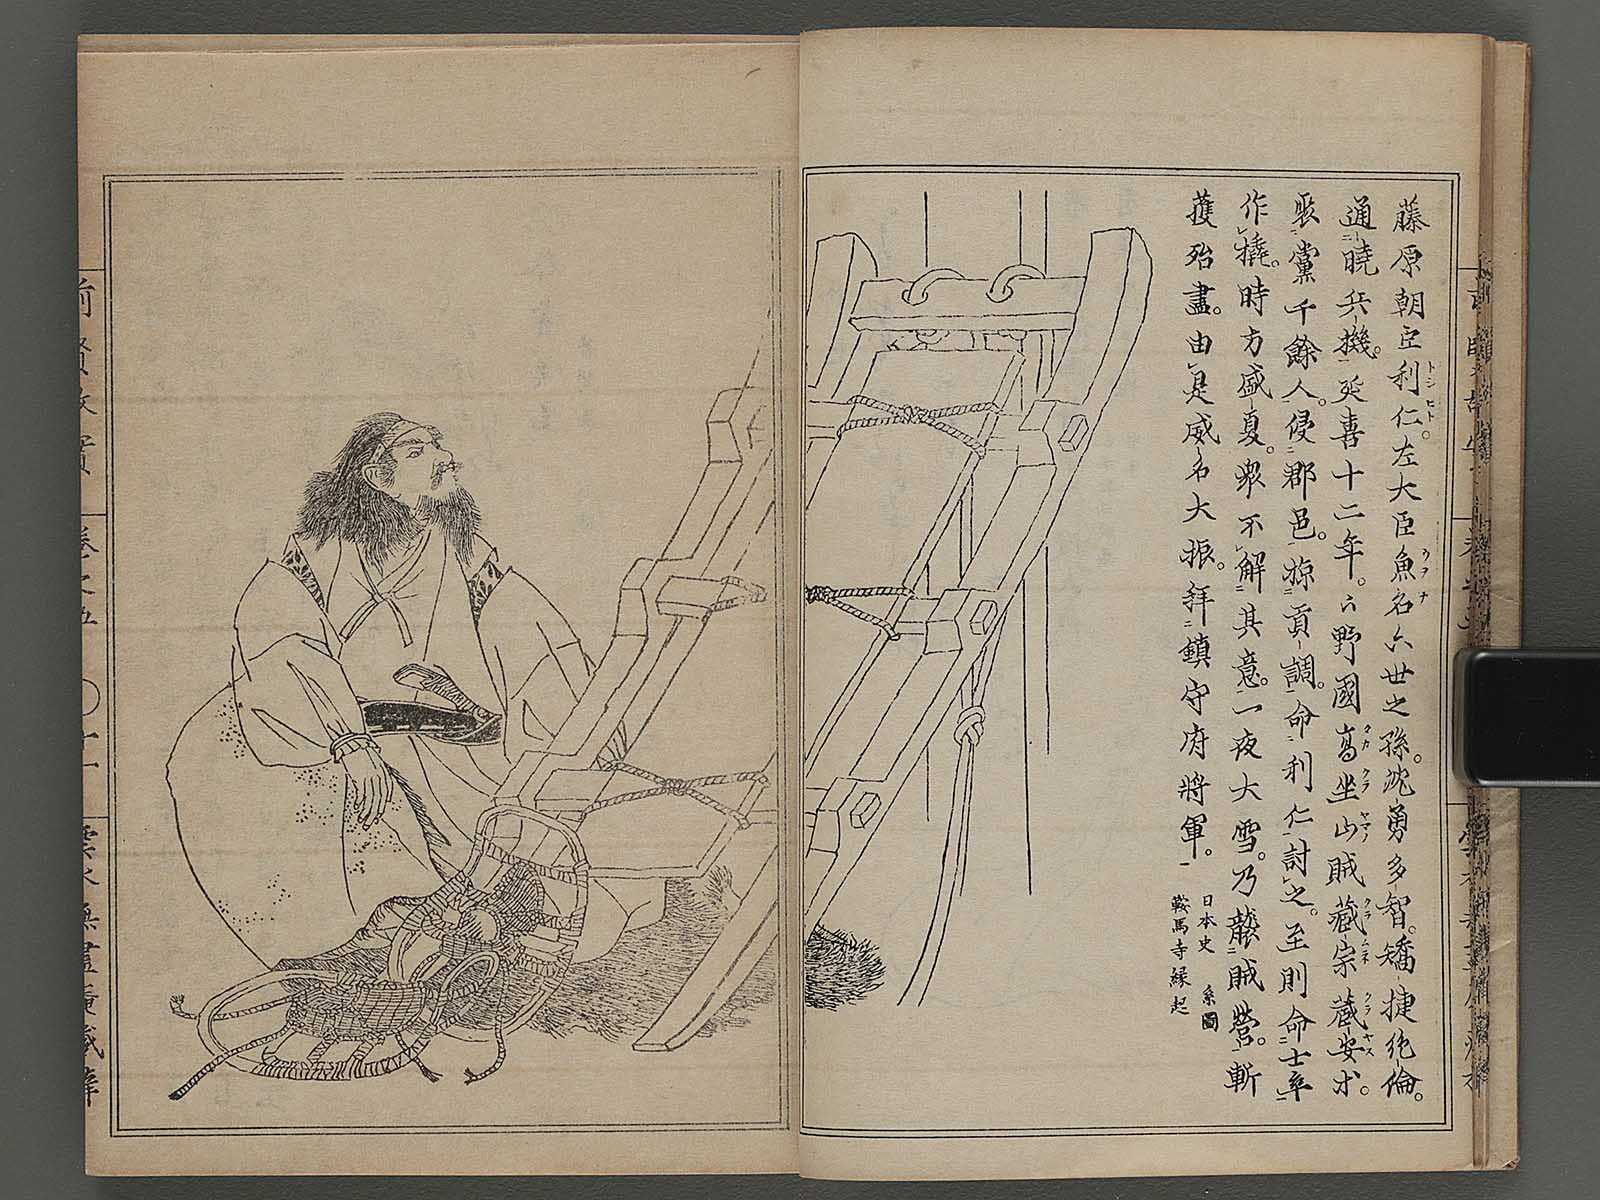 藤原朝臣利仁。左大臣魚名六世之孫。沈勇多智。矯捷絶倫。
トシヒト
ウヲナ
通曉兵機。延喜十二年。下野國高坐山賊藏宗藏安等。
タカクラヤマノ
クラムネ
クラヤス
聚黨千餘人。侵郡邑。掠貢調。命利仁討之。至則命士卒
作橇。時方盛夏。衆不解其意。一夜大雪。乃襲賊營。斬
獲殆盡。由是威名大振。拜鎮守府將軍。
日本史 系圖
鞍馬寺緣起
前賢故實 卷之五 〇十一 雲水無盡庵藏梓